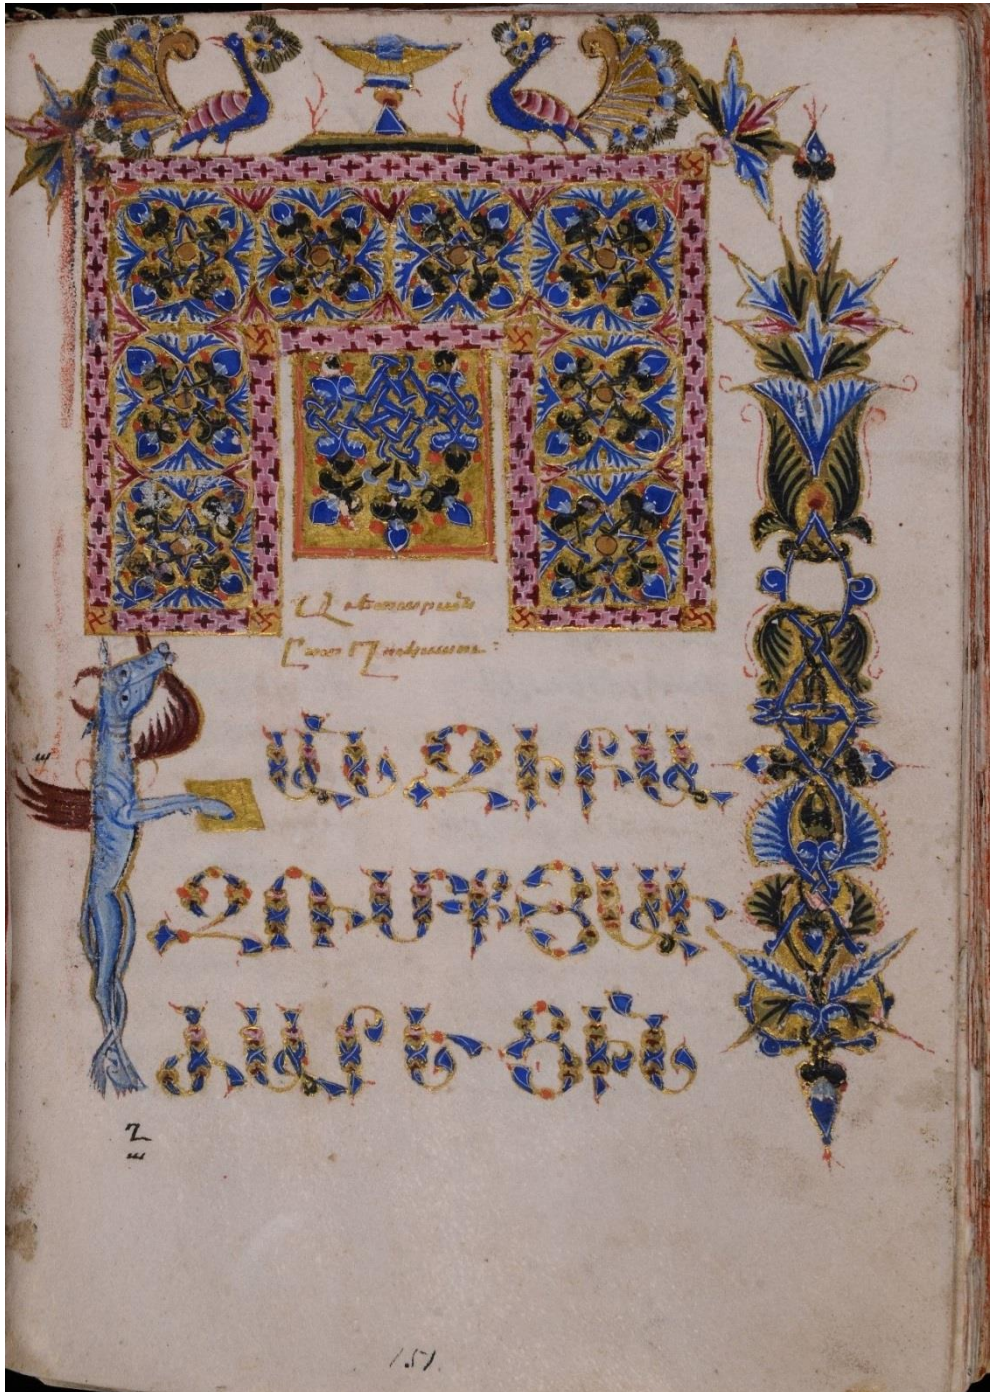 Աւետարան
Ըստ Ղուկասու:
ՔԱՆԶԻԲԱ
ԶՈՒՄՔՅԱՒ
ԺԱՐԵՑԻՆ
151